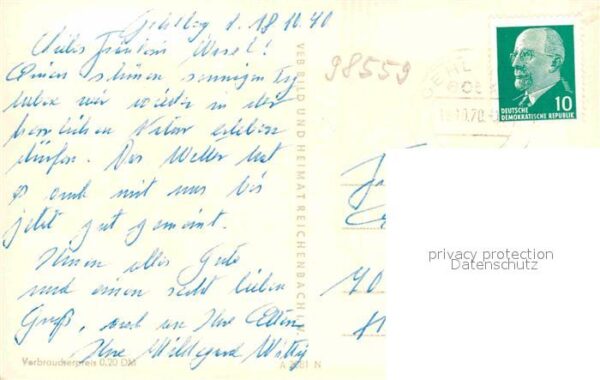 18.10.70
Liebes Fräulein Wesel!
Einen schönen sonnigen Tag
haben wir wieder in der
herrlichen Natur erleben
dürfen. Das Wetter hat
es auch mit uns bis
jetzt gut gemeint.
Ihnen alles Gute
und einen recht lieben
Gruß, auch an Ihre Eltern
Ihre Hildegard
Verbraucherpreis 0,20 DM
VEB BILD UND HEIMAT REICHENBACH I. V.
A 7081 N
98559
10
DEUTSCHE
DEMOKRATISCHE REPUBLIK
privacy protection
Datenschutz
70